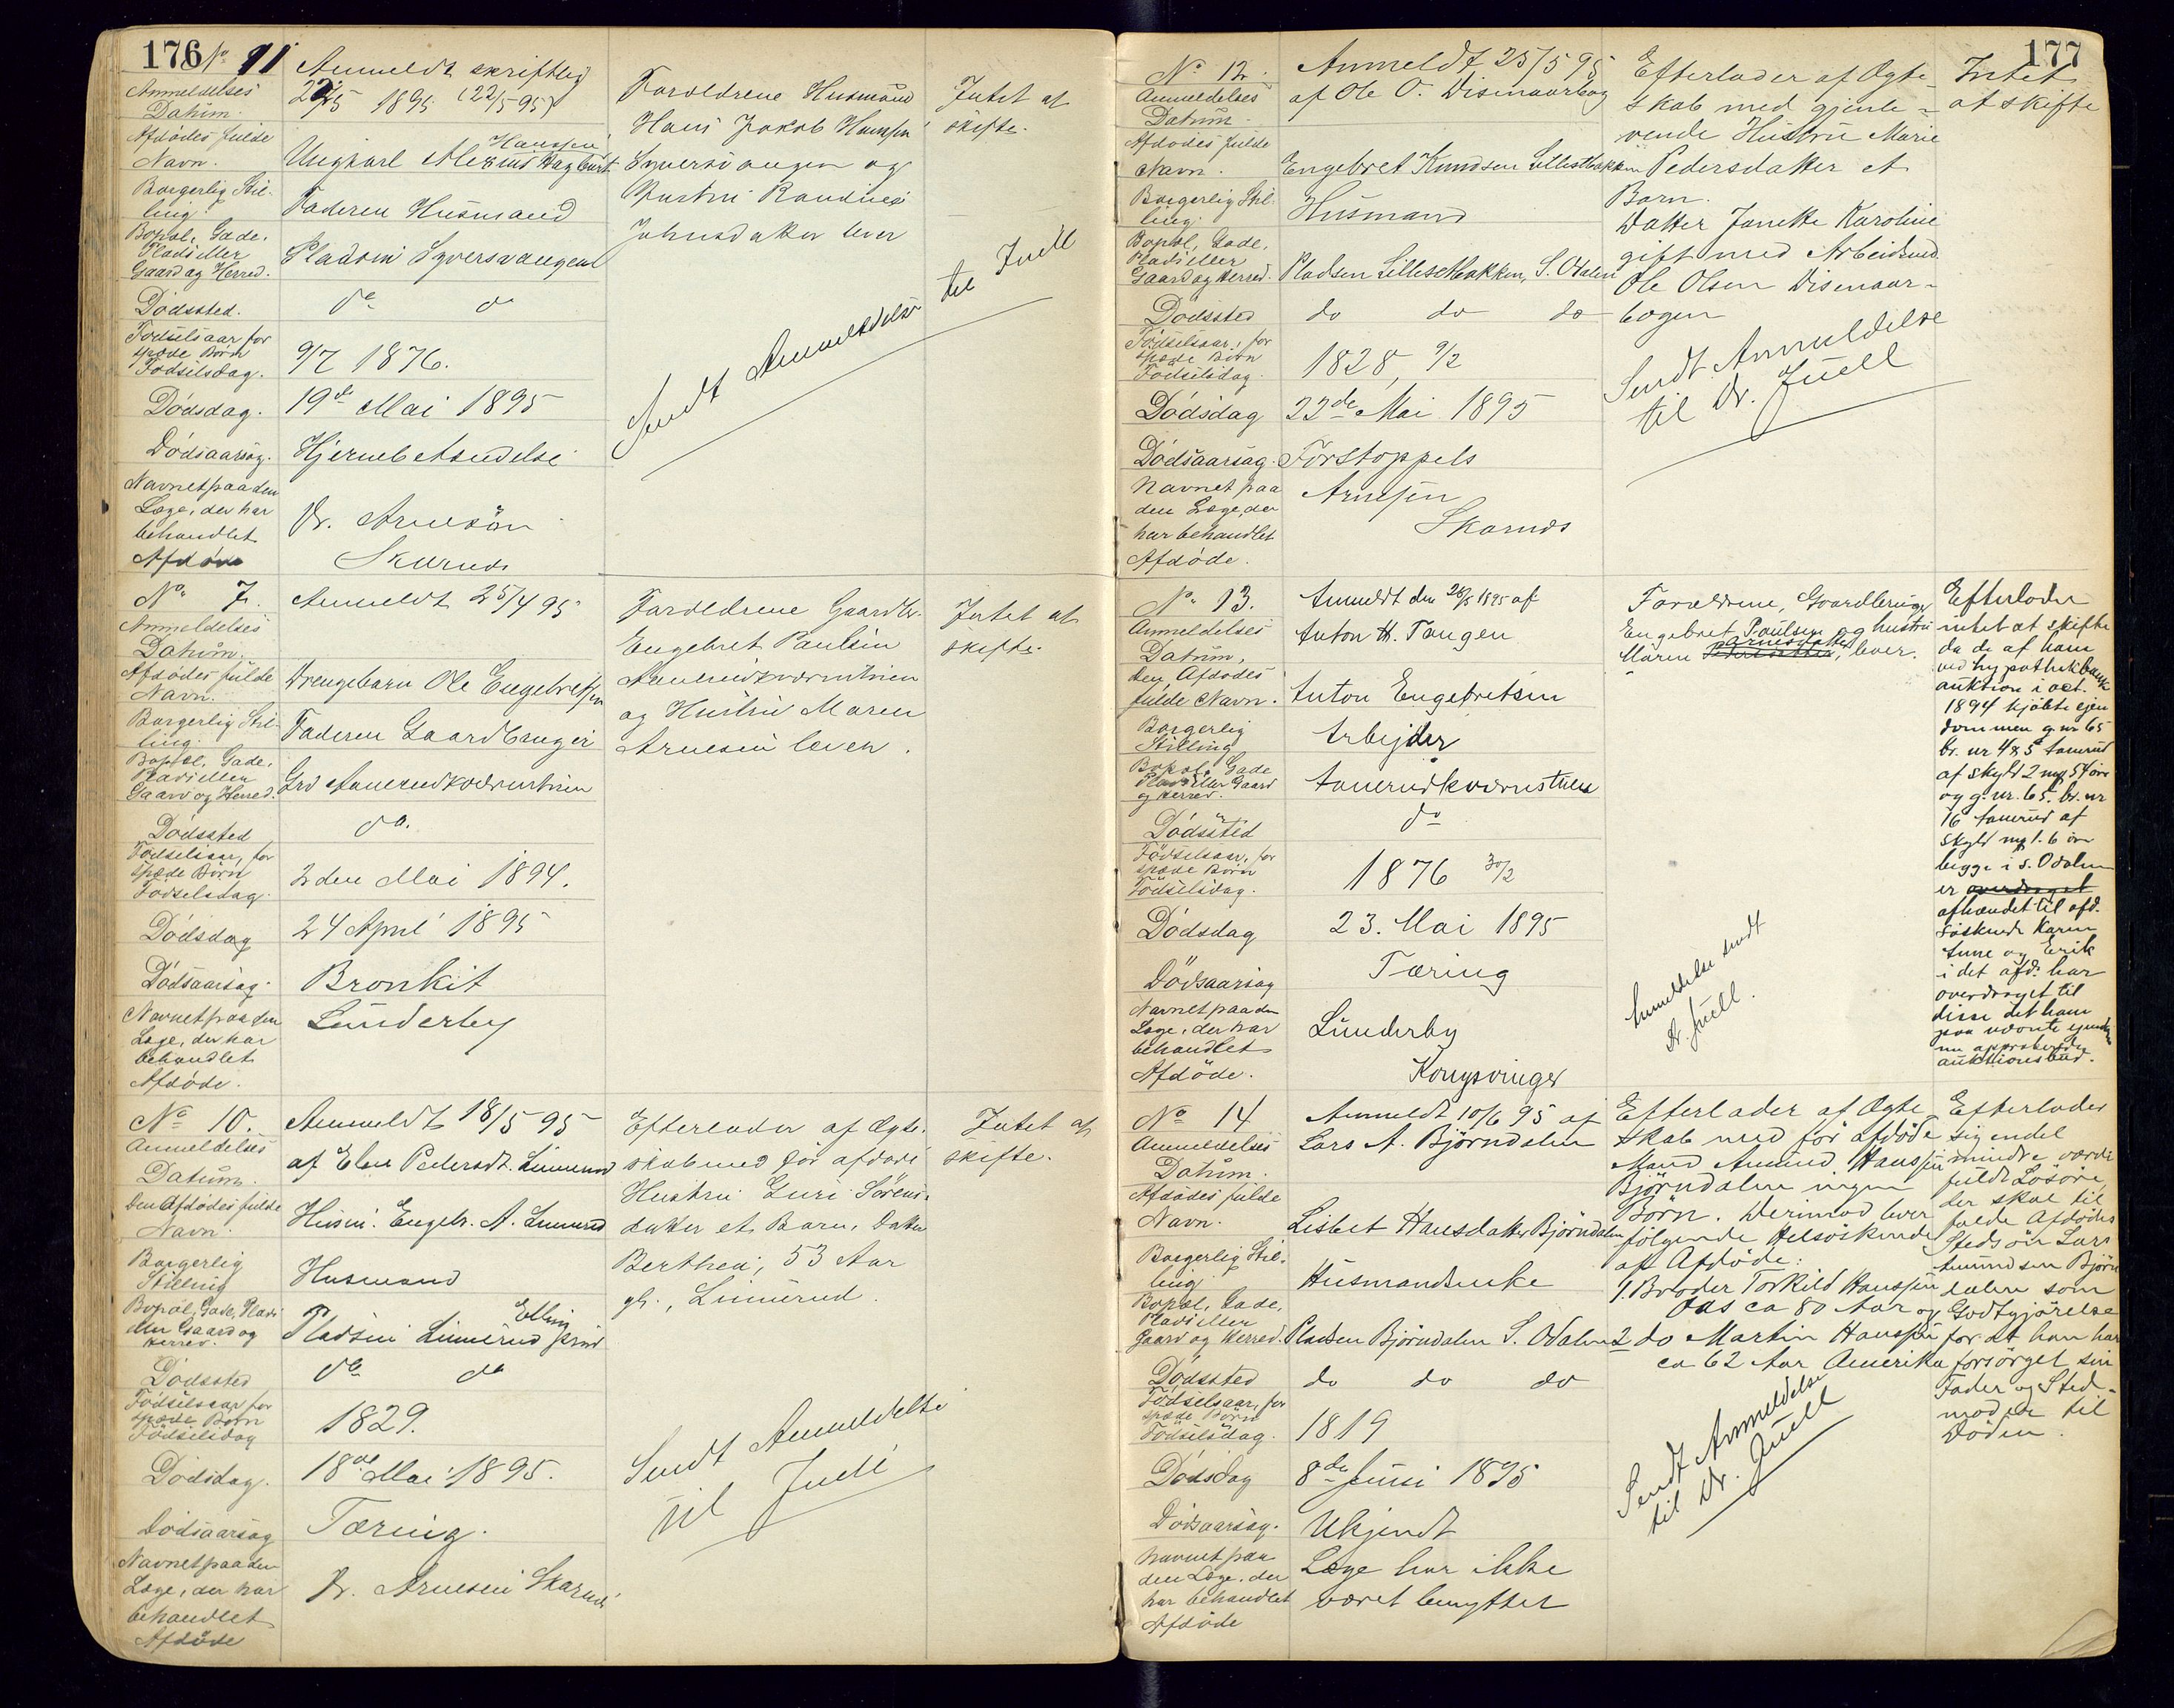 176 No 11
Anmeldt skriftlig
22/5 1895 (22/5 95)
Anmeldelses
Datum.
Afdødes fulde
Navn.
Hanssen
Ungkarl Alexius Hagbart
Borgerlig Stil-
ling.
Faderen Husmand
Bopæl, Gade,
Plads eller
Gaard og Herred.
Pladsen Syversvangen
Dødssted.
do do
Fødselsaar for
spæde Børn
Fødselsdag.
9/7 1876.
Dødsdag.
19de Mai 1895
Dødsaarsag.
Hjernebetændelse
Navnet paa den
Læge, der har
behandlet
Afdøde
Dr. Arnesen
Skarnes
Forældrene Husmand
Hans Jakob Hanssen
Syversvangen og
Hustru Randine
Johnsdatter lever
Sendt Anmeldelse til Juell
Intet at
skifte.
No 7.
Anmeldt 25/4 95
Anmeldelses
Datum.
Afdødes fulde
Navn.
Drengebarn Ole Engebretsen
Borgerlig Stil-
ling.
Faderen Gaardbruger
Bopæl, Gade,
Plads eller
Gaard og Herred.
Grd Aanerudkværnstuen
Dødssted
do.
Fødselsaar, for
spæde Børn
Fødselsdag.
2den Mai 1894.
Dødsdag
24 April 1895
Dødsaarsag.
Bronkit
Navnet paa den
Læge, der har
behandlet
Afdøde.
Lunderby
Forældrene Gaardbr.
Engebret Paulsen
Aanerudkværnstuen
og Hustru Maren
Arnesen lever.
Intet at
skifte.
No 10.
Anmeldt 18/5 95
af Elen Pedersdt. Linnerud
Anmeldelses
Datum.
Den Afdødes fulde
Navn.
Husm. Engebr. A. Linnerud
Borgerlig
Stilling
Husmand
Bopæl, Gade, Plads
eller Gaard og
Herred.
Pladsen Linnerud
Dødssted
do do
Fødselsaar for
spæde Børn
Fødselsdag
1829.
Dødsdag.
18de Mai 1895.
Dødsaarsag
Tæring.
Navnet paa den
Læge, der har
behandlet
Afdøde
Dr. Arnesen Skarnes
Efterlader af Ægte-
skab med før afdøde
Hustru Guri Sørens-
datter et Barn, Datter
Berthea, 53 Aar
gl., Linnerud.
Sendt Anmeldelse
til Juell
Intet at
skifte.
177
No 12.
Anmeldt 25/5 95
af Ole O. Disenaarbog
Anmeldelses
Datum.
Afdødes fulde
Navn.
Engebret Knudsen Lillestbakken
Borgerlig Stil-
ling.
Husmand
Bopæl, Gade,
Plads eller
Gaard og Herred.
Pladsen Lillestbakken, S. Odalen
Dødssted
do do do
Fødselsaar, for
spæde Børn
Fødselsdag.
1828, 9/2
Dødsdag
22de Mai 1895
Dødsaarsag.
Forstoppels
Navnet paa
den Læge, der
har behandlet
Afdøde.
Arnesen
Skarnes
Efterlader af Ægte-
skab med gjenle-
vende Hustru Marie
Pedersdatter et
Barn.
Datter Janette Karoline
gift med Arbeidsmd.
Ole Olsen Disenaar-
bogen
Sendt Anmeldelse
til Dr. Juell
Intet
at skifte
No 13.
Anmeldt den 26/5 1895 af
Anton H. Tangen
Anmeldelses
Datum,
den Afdødes
fulde Navn.
Anton Engebretsen
Borgerlig
Stilling
Arbejder
Bopæl, Gade
Plads eller Gaard
og Herred.
Aanerudkværnstuen
Dødssted
do
Fødselsaar, for
spæde Børn
Fødselsdag.
1876
Dødsdag
23. Mai 1895
Dødsaarsag
Tæring
Navnet paa den
Læge, der har
behandlet
Afdøde.
Lunderby
Kongsvinger
Forældrene, Gaardbruger
Engebret Paulsen og hustru
Arnesdatter
Maren lever.
Anmeldelse sendt
Dr. Juell.
Efterlader
intet at skifte
da de af ham
ved hypothekbank
auktion i oct.
1894 kjøbte ejen
dommen g.nr 65
br. nr 4 & 5 Aanerud
af skyld 2 mk 54 øre
og g. nr. 65. br. nr
16 Aanerud af
skyld mk 1.6 øre
begge i S. Odalen
er overdraget
afhændet til afd.
søskende Karen
Anne og Erik
i det afd. har
overdraget til
disse det ham
paa nævnte ejendom
nu approberede
auktionsbud.
No 14
Anmeldt 10/6 95 af
Lars A. Bjørndalen
Anmeldelses
Datum.
Afdødes fulde
Navn.
Lisbet Hansdatter Bjørndalen
Borgerlig Stil-
ling
Husmandsenke
Bopæl, Gade,
Plads eller
Gaard og Herred.
Pladsen Bjørndalen S. Odalen
Dødssted
do do do
Fødselsaar, for
spæde Børn
Fødselsdag.
1819
Dødsdag
8de Juni 1895
Dødsaarsag.
Ukjendt
Navnet paa
den Læge, der
har behandlet
Afdøde
Læge har ikke
været benyttet
Efterlader af Ægte
skab med før afdøde
Mand Amund Hanssen
Bjørndalen ingen
Børn. Derimod lever
følgende Helsøskende
af Afdøde:
1. Broder Torkild Hanssen
Oas ca 80 Aar og
2 do Martin Hanssen
ca 62 Aar Amerika
Sendt Anmeldelse
til Dr. Juell
Efterlader
sig endel
mindre værdi
fuldt Løsøre,
der skal til
falde Afdødes
Stedsøn Lars
Amundsen Bjørn
dalen som
Godtgjørelse
for at han har
forsørget sin
Fader og Sted-
moder til
Døden.